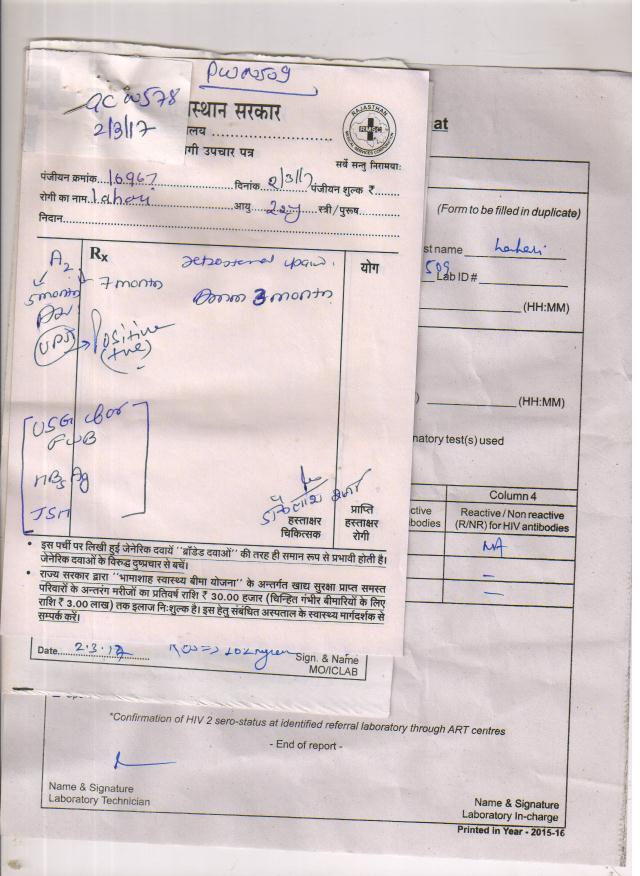 PWN509
QCW578
2/3/17
स्थान सरकार
RAJASTHAN
RMSC
MEDICAL SERVICES CORPORATION
सर्वे सन्तु निरामयाः
लय
गी उपचार पत्र
पंजीयन क्रमांक 16967 दिनांक 2/3/17 पंजीयन शुल्क ₹
रोगी का नाम Lahari आयु 22y स्त्री/पुरूष
निदान
A2 Rx योग
7 month
5 month 3 month
UPT Positive
(+ve)
USG
FWB
HBsAg
TSH
हस्ताक्षर
चिकित्सक
प्राप्ति
हस्ताक्षर
रोगी
• इस पर्ची पर लिखी हुई जेनेरिक दवायें ''ब्राँडेड दवाओं'' की तरह ही समान रूप से प्रभावी होती है।
जेनेरिक दवाओं के विरुद्ध दुष्प्रचार से बचें।
• राज्य सरकार द्वारा ''भामाशाह स्वास्थ्य बीमा योजना'' के अन्तर्गत खाद्य सुरक्षा प्राप्त समस्त
परिवारों के अन्तरंग मरीजों का प्रतिवर्ष राशि ₹ 30.00 हजार (चिन्हित गंभीर बीमारियों के लिए
राशि ₹ 3.00 लाख) तक इलाज निःशुल्क है। इस हेतु संबंधित अस्पताल के स्वास्थ्य मार्गदर्शक से
सम्पर्क करें।
Date 2.3.17
Sign. & Name
MO/ICLAB
at
(Form to be filled in duplicate)
st name Lahari
509 Lab ID #
(HH:MM)
) (HH:MM)
natory test(s) used
Column 4
ctive
bodies
Reactive / Non reactive
(R/NR) for HIV antibodies
NA
–
–
*Confirmation of HIV 2 sero-status at identified referral laboratory through ART centres
- End of report -
Name & Signature
Laboratory Technician
Name & Signature
Laboratory In-charge
Printed in Year - 2015-16